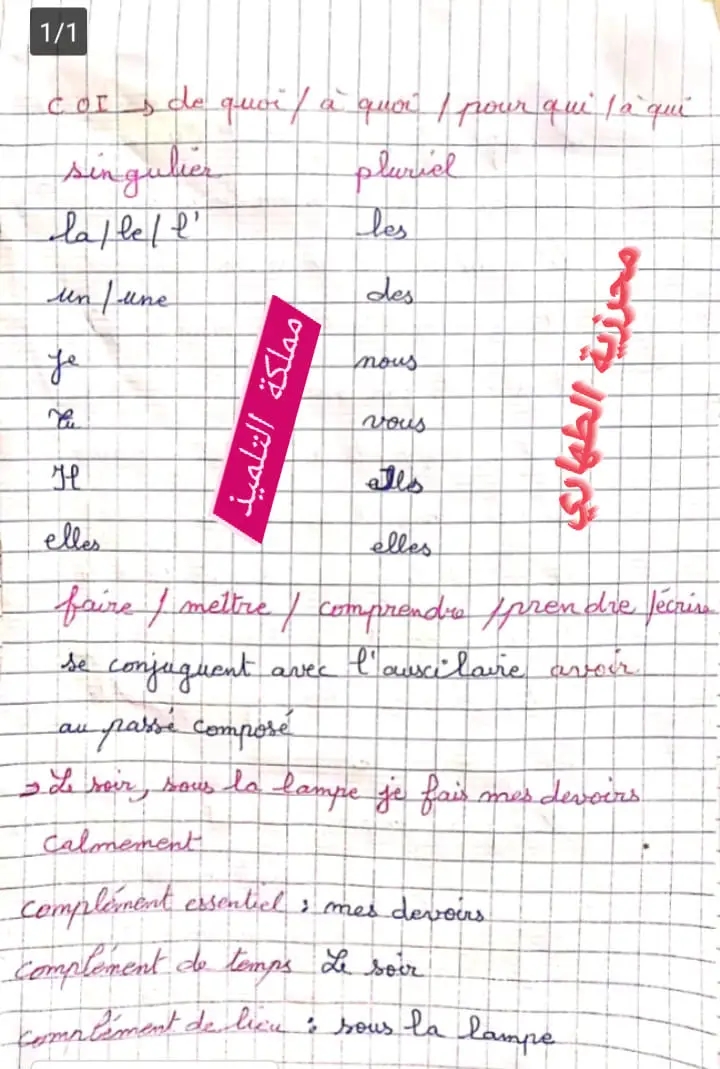 1/1
COI → de quoi / à quoi / pour qui / à qui
singulier pluriel
la / le / l' les
un / une des
je nous
Tu vous
Il
elles elles
مملكة التلميذ
محرزية الطهاري
faire / mettre / comprendre / prendre / écrire
se conjuguent avec l'auscilaire avoir
au passé composé
⇒ Le soir, sous la lampe je fais mes devoirs
Calmement
complément essentiel : mes devoirs
complément de temps Le soir
complément de lieu : sous la lampe